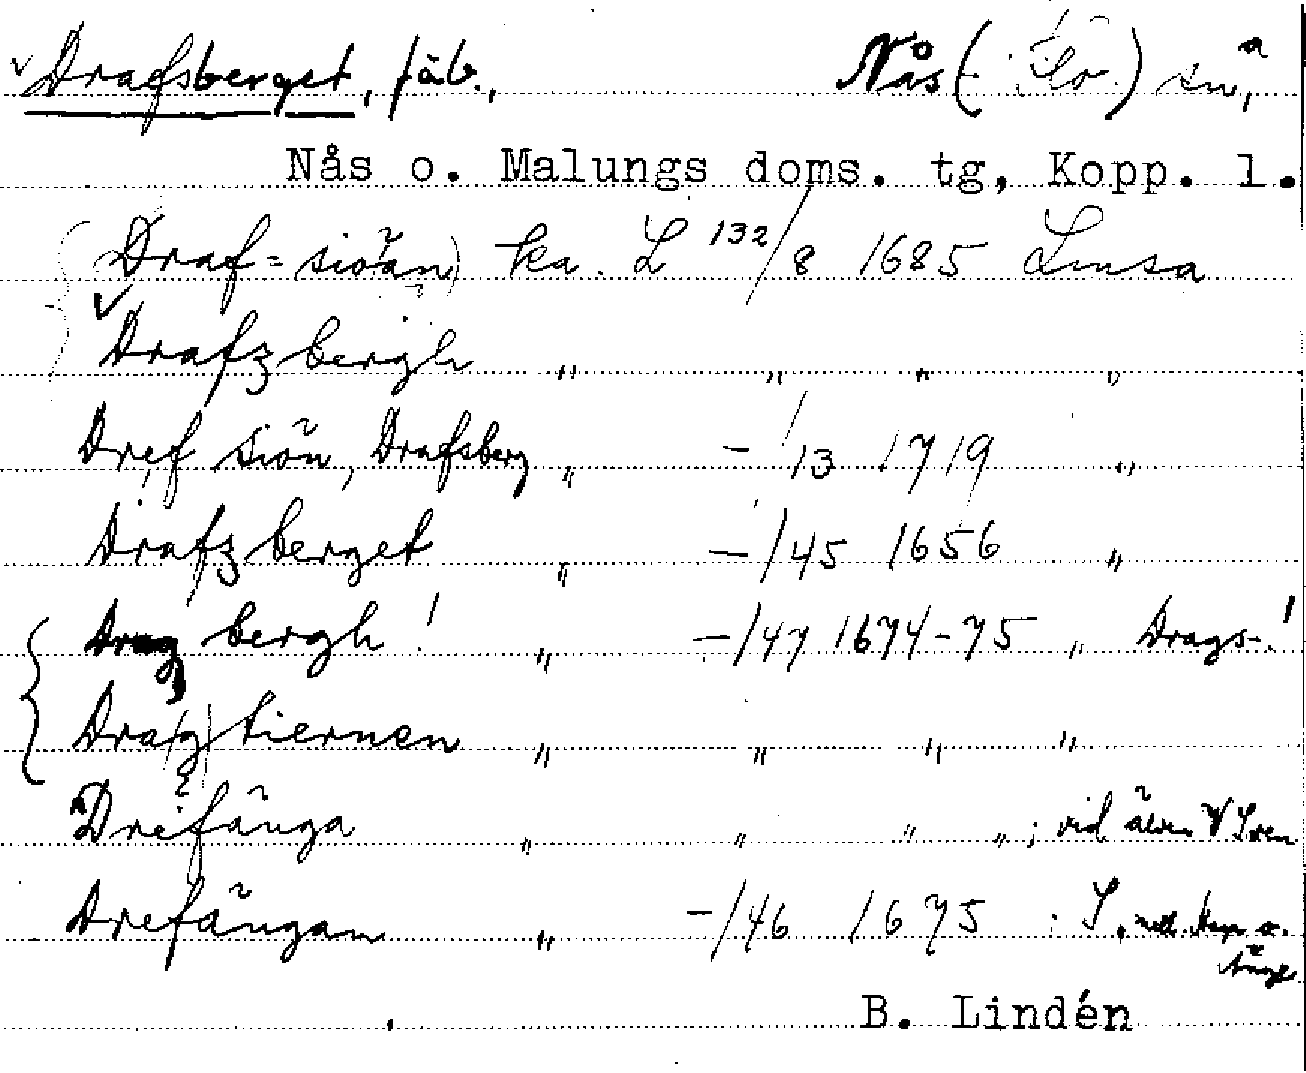 Drafsberget, fäb., Nås ( ) sn,
Nås o. Malungs doms. tg, Kopp. l.
Draf=siöän) ka. L 132/8 1685 Lmsa
Drafzbergh " " " "
Dref siön, Drafsberg " -/13 1719 "
Drafzberget " -/45 1656 "
Drag bergh! " -/47 1674-75 " Drags-!
Drag tiernen " " " "
Drefänga " " " " ; vid älven
Drefängan " -/46 1675
B. Lindén